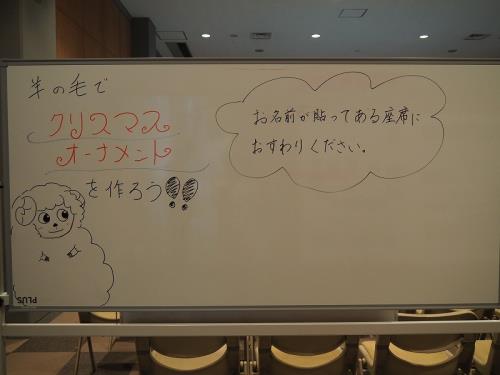 羊の毛で
クリスマス
オーナメント
を作ろう!!
お名前が貼ってある座席に
おすわりください。
PLUS